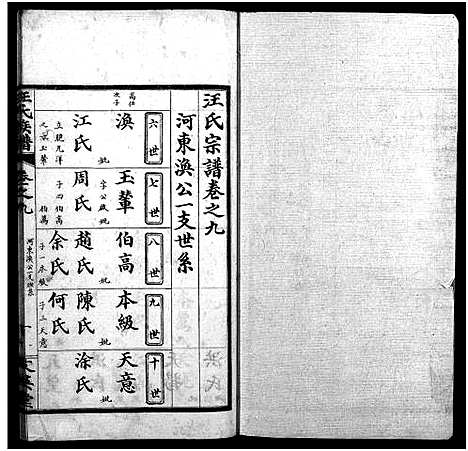 汪氏宗譜卷之九
河東渙公一支世系
六世
七世
八世
九世
十世
萬仕
次子
渙
玉輦
字公威
伯高
本級
天意
江氏
妣
周氏
妣
趙氏
妣
陳氏
妣
涂氏
妣
立繼允洋
之子玉輦
子四伯高
伯萬
余氏
子一本級
何氏
子二天意
汪氏族譜
卷之九
河東渙公支世系